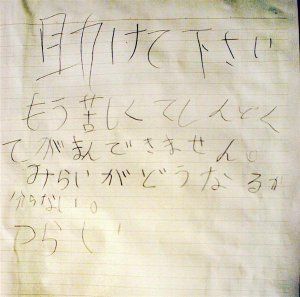 助けて下さい
もう苦しくてしんどく
てがまんできません。
みらいがどうなるか
分らない。
つらい